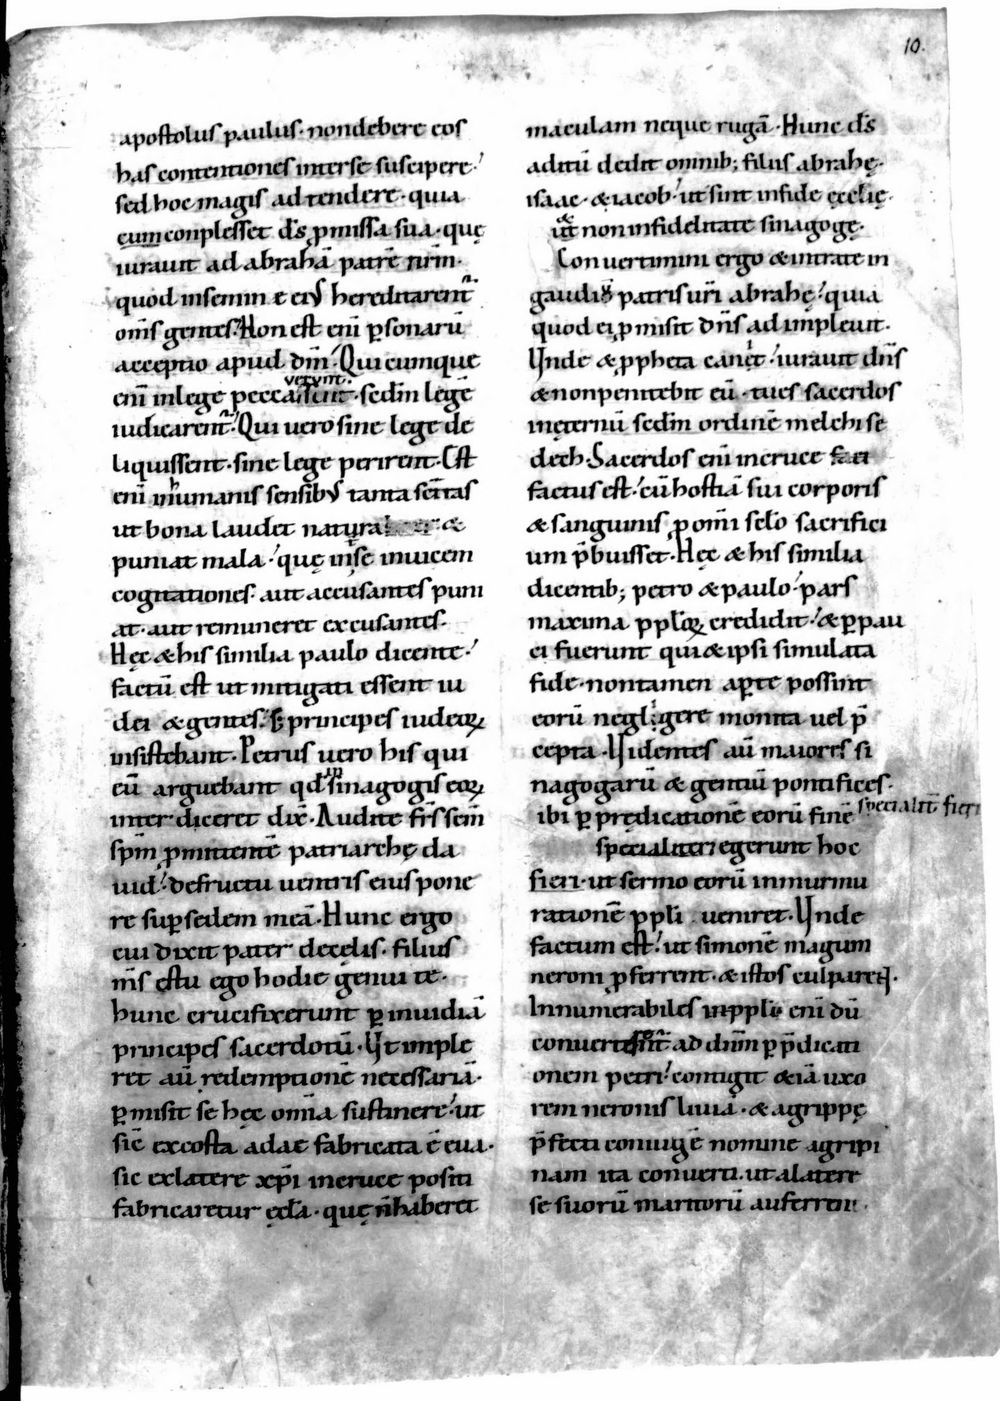 10.
apostolus paulus· non debere eos
has contentiones inter se suscipere·
sed hoc magis adtendere· quia
cum conplesset ds̄ p̱missa sua· quę
iurauit ad abrahā patrē nr̄m·
quod in semine eiꝰ hereditarent᷑
om̄s gentes· Non est enī ꝑsonarū
acceptio apud dm̄· Quicumque
uerunt·
enī in lege peccasſint· sedm̄ legē
iudicarent᷑· Qui uero sine lege de
liquissent· sine lege perirent· Est
enī inhumanis sensibꝰ tanta sc̄itas
ut bona laudet natura &
puniat mala· quę inter se inuicem
cogitationes· aut accusantes puni
at· aut remuneret excusantes·
Hęc & his similia paulo dicente·
factū est ut mitigati essent iu
dei & gentes· S; principes iudeoꝝ
insistebant· Petrus uero his qui
eū arguebant qd̄ in sinagogis eoꝝ
inter diceret dix̄· Audite fr̄s sc̄m
sp̄m p̱mittentē patriarchę da
uid· de fructu uentris eius pone
re suꝑ sedem meā· Hunc ergo
cui dixit pater de cęlis· filius
m̄s es tu ego hodie genui te·
hunc crucifixerunt ꝑ inuidiā
principes sacerdotū· Ut imple
ret aū redemptionē necessariā·
ꝑmisit se hęc om̄ia sustinere· ut
sic̄ ex costa adae fabricata ē eua·
sic ex latere xp̄i in cruce positi
fabricaretur ęccl̄a· quę n̄ haberet
maculam neque rugā· Hunc ds̄
aditū dedit omnib; filiis abrahę·
isaac· & iacob· ut sint in fide ęcclīę·
& non infidelitate sinagogę·
Conuertimini ergo & intrate in
gaudiū patris ur̄i abrahę· quia
quod ei p̱misit dn̄s adimpleuit·
Unde & p̱pheta canit· iurauit dn̄s
& non penitebit eū· tu es sacerdos
in ęternū sedm̄ ordinē melchise
dech· Sacerdos enī in cruce
factus est· cū hostiā sui corporis
& sanguinis p̱ omī sc̄lo sacrifici
um p̄buisset· Hęc & his similia
dicentib; petro & paulo· pars
maxima p̱pl̄oꝝ credidit· & ꝑpau
ci fuerunt qui & ipsi simulata
fide· non tamen aꝑte possint
eorū negligere monita uel p̄
cepta· Uidentes aū maiores si
nagogarū & gentiū pontifices·
ibi ꝑ prędicationē eorū finē specialit̄ fieri
specialiter egerunt hoc
fieri· ut sermo eorū in murmu
rationē p̱pl̄i ueniret· Unde
factum est· ut simonē magum
neroni p̱ferrent· & istos culparent·
Innumerabiles pplī enī dū
ad dn̄m ꝑ p̄dicati
onem petri· contigit & iā uxo
rem neronis liuiā· & agrippę
p̄fecti coniugē nomine agripi
nam ita conuerti· ut a latere
se suorū maritorū auferrent·